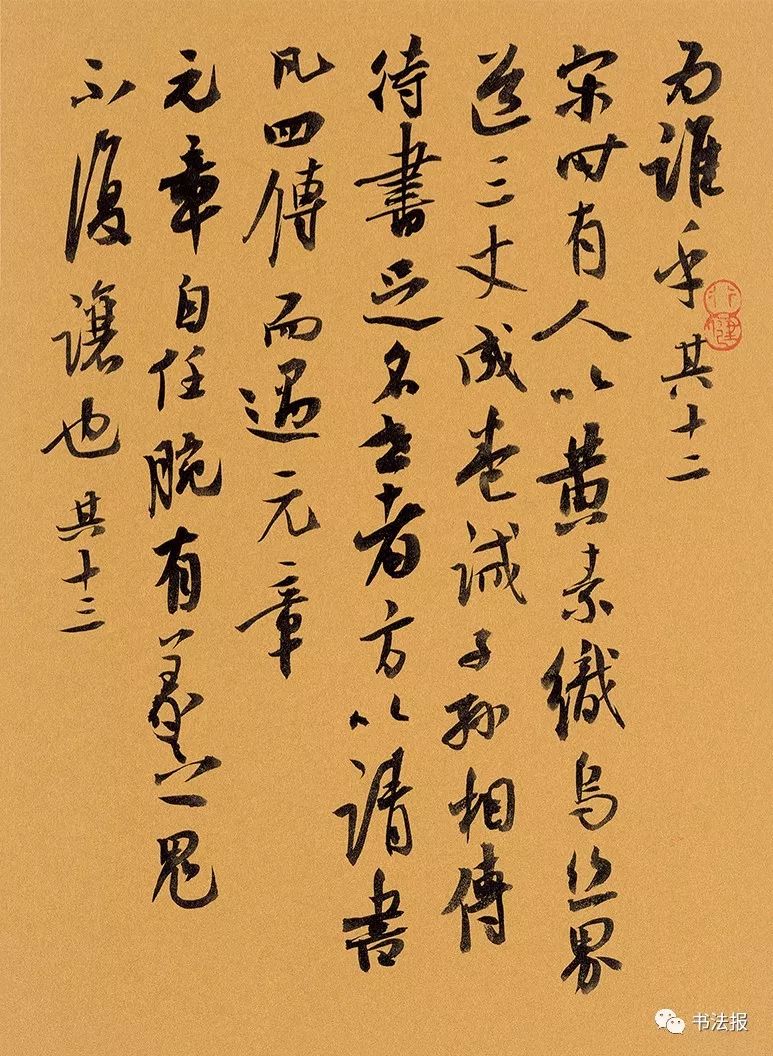 为誰乎 其十二
宋世有人以黄素織烏丝界
道三丈成卷誡子孫相傳
待書足名世者方以請書
凡四傳而遇元章
元章自任腕有羲之鬼
不復讓也 其十三
行健
书法报